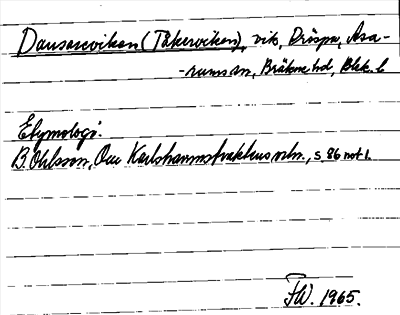 Dansareviken (Tåkerviken), vik, Dröspe, Asa-
-rums sn, Bräkne hd, Blek. l.
Etymologi:
B. Ohlsson, Om Karlshamnstraktens ortn., s. 86 not 1.
FW. 1965.